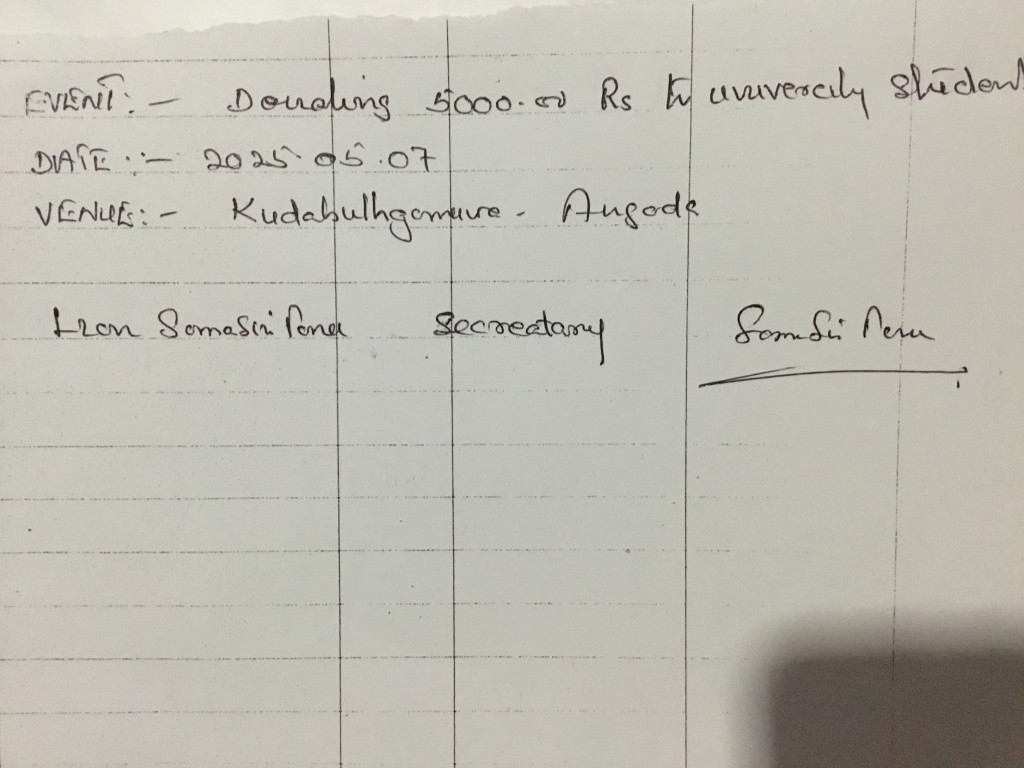 EVENT:- Donating 5000.00 Rs to univercity student
DATE:- 2025.05.07
VENUE:- Kudabuthgamuwa - Angoda
Lion Somasiri Secreatary Somasiri